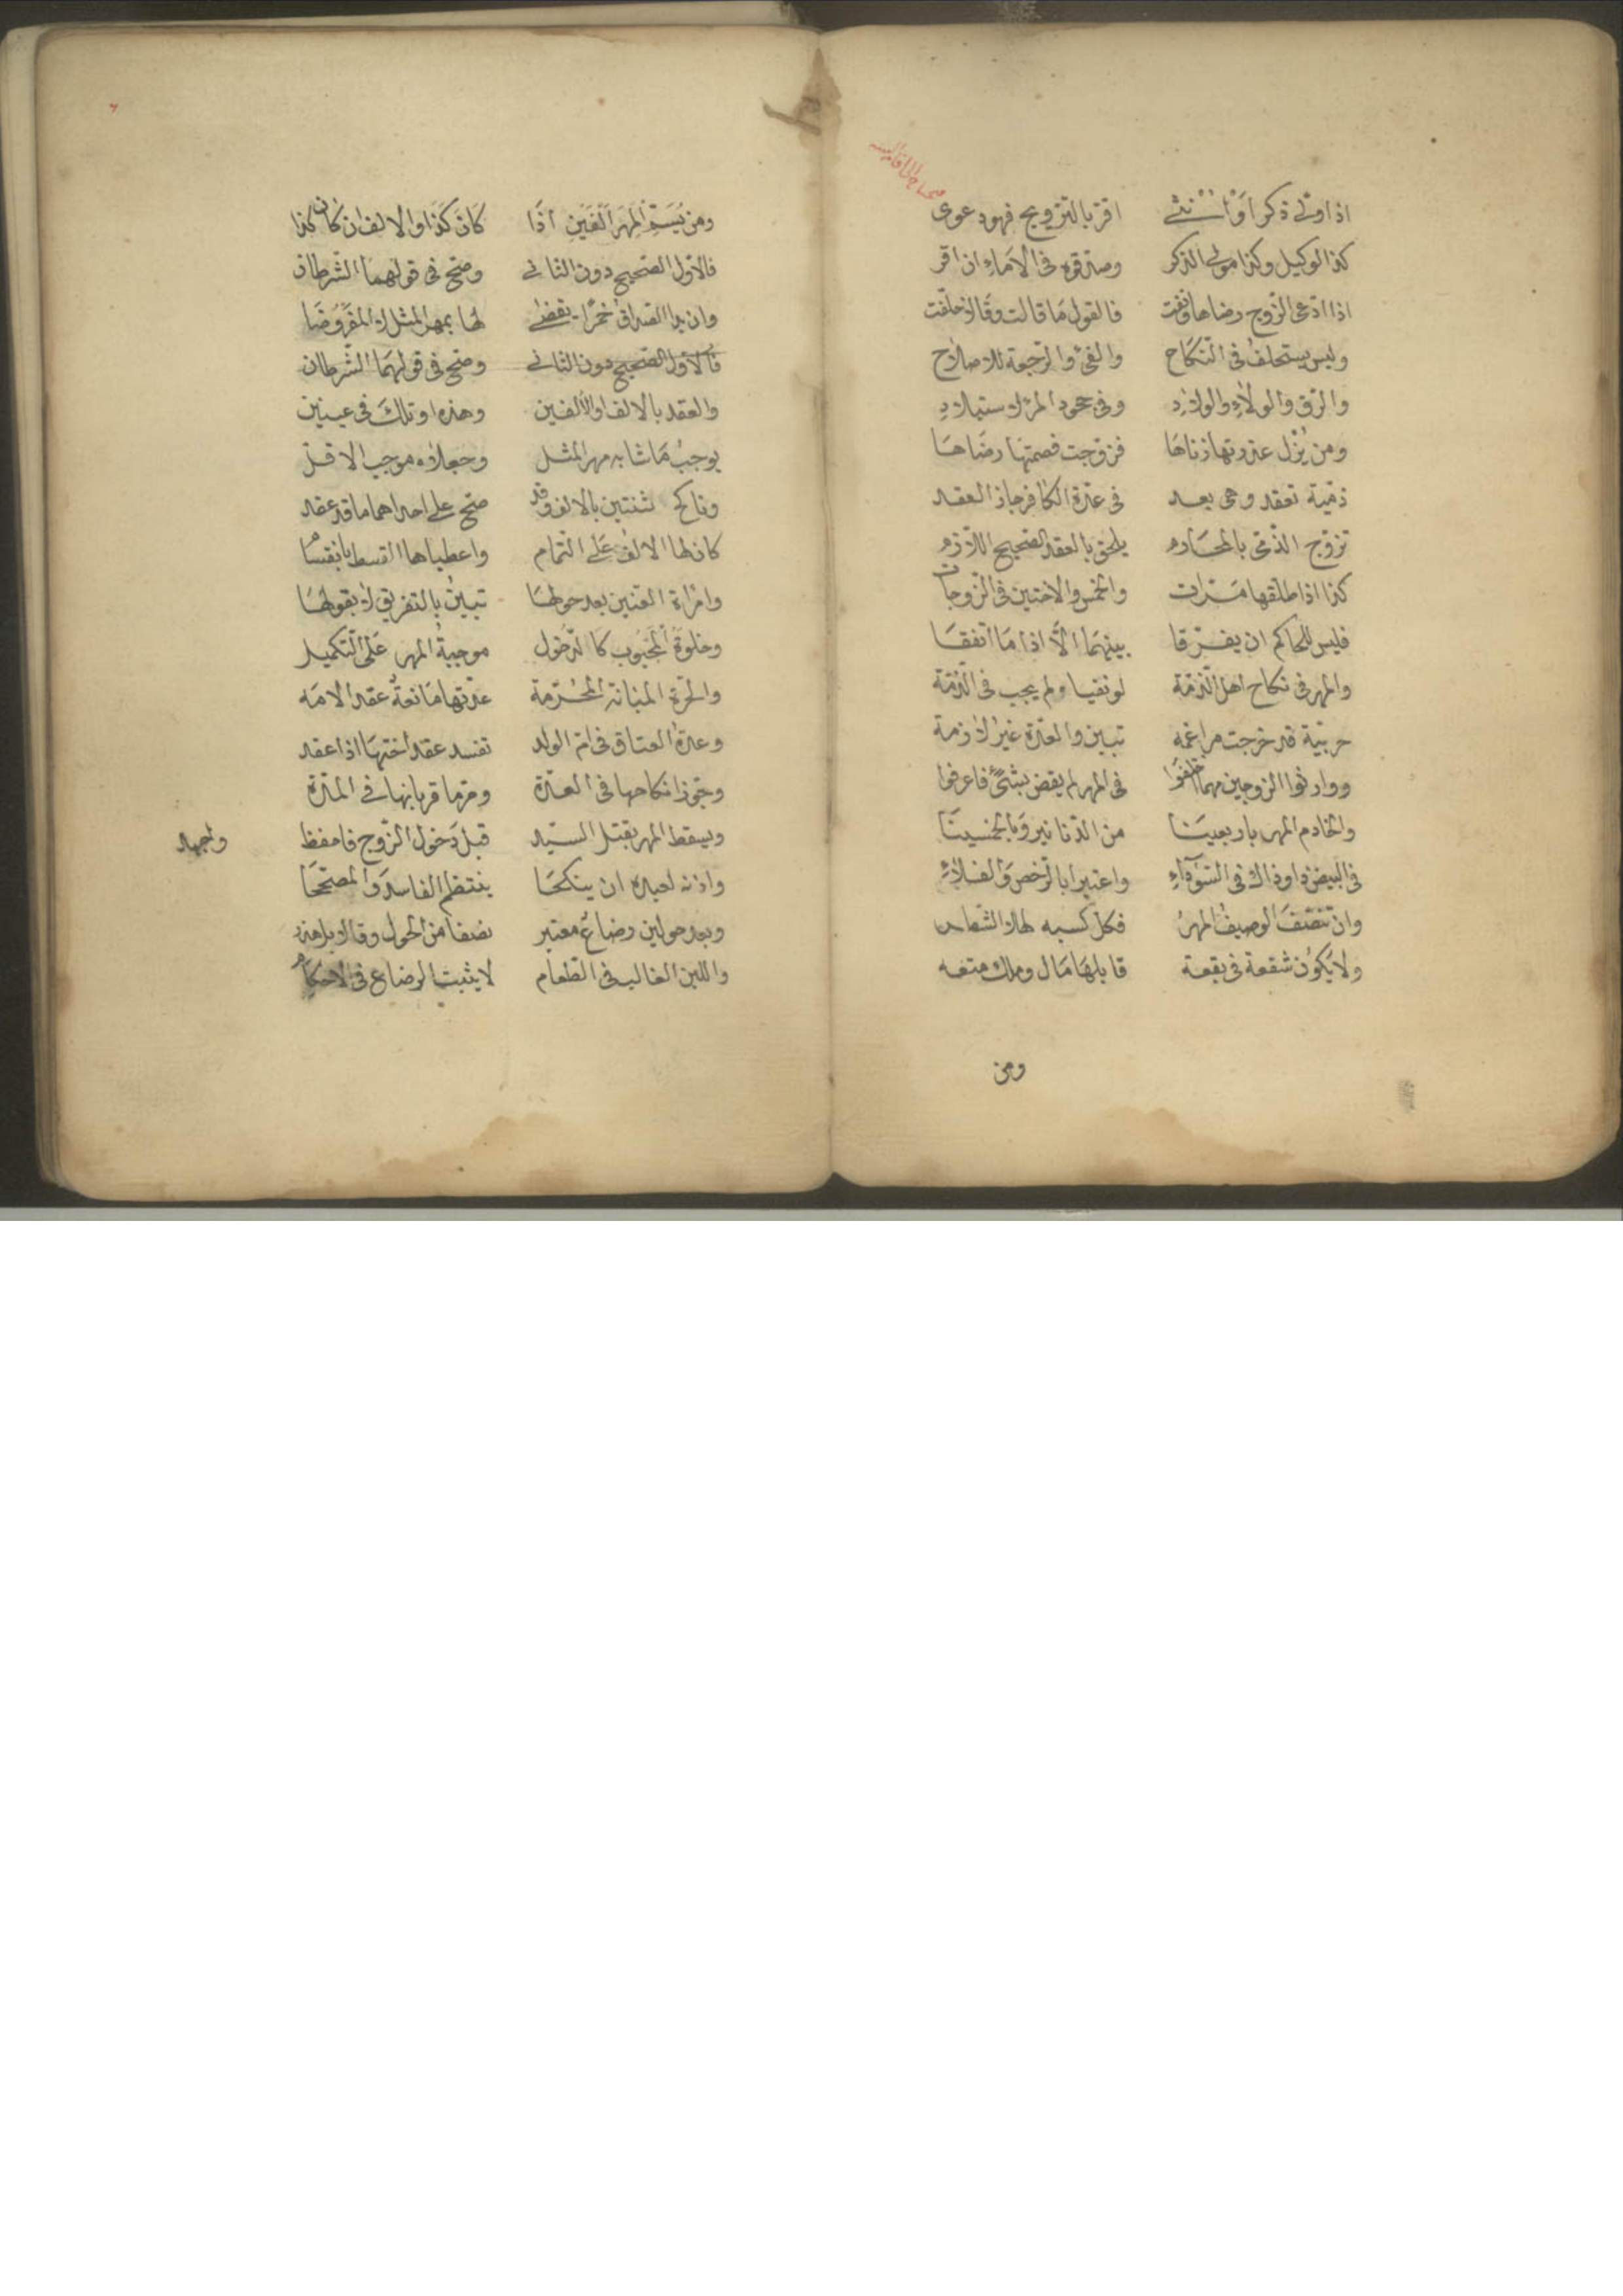 اذا ولي ذكر او انثى اقر بالتزويج فهو دعوى
كذا الوكيل وكذا مولى الذكر وصدقوه في الاماء ان اقر
اذا ادعى الزوج رضاها ونفت فالقول ما قالت وقالا حلفت
وليس يستحلف في النكاح والفيء والرجعة للاصلاح
والرق والولاء والولاد وفي جحود المرء لاستيلاد
ومن يزل عذرتها زناها فزوجت فصمتها رضاها
ذمية تعقد وهي بعد في عدة الكافر جاز العقد
تزوج الذمي بالمحارم يلحق بالعقد الصحيح اللازم
كذا اذا طلقها مرات والخمس والاختين في الزوجات
فليس للحاكم ان يفرقا بينهما الا اذا ما اتفقا
والمهر في نكاح اهل الذمة لو نفيا ولم يجب في الذمة
حربية قد خرجت مراغمه تبين والعدة غير لازمة
ووارثوا الزوجين مهما اختلفوا في المهر لم يقض بشيء فاعرفوا
والخادم المهر باربعينا من الدنانير وبالخمسينا
في البيض ذا وذاك في السوداء واعتبرا بالرخص والغلاء
وان تنصف الوصيف المهر فكل كسبه لها لا الشطر
ولا يكون شفعة في بقعة قابلها مال وملك متعه
ومن
ومن يسم المهر الفين اذا كان كذا والالف ان كان كذا
فالاول الصحيح دون الثاني وصح في قولهما الشرطان
وان بدا الصداق خمرا يقضى لها بمهر المثل لا المفروضا
فالاول الصحيح دون الثاني وصح في قولهما الشرطان
والعقد بالالف او الالفين وهذه او تلك في عينين
يوجب ما شابه مهر المثل وجعلاه موجب الاقل
وناكح ثنتين بالالف وقد صح على احداهما ما قد عقد
كان لها الالف على التمام واعطياها القسط بانقسام
وامراة العنين بعد حولها تبين بالتفريق لا بقولها
وخلوة المجبوب كالدخول موجبة المهر على التكميل
والحرة المبانة المحرمة عدتها مانعة عقد الامه
وعدة العتاق في ام الولد تفسد عقد اختها اذا عقد
وجوزا نكاحها في العدة وحرما قربانها في المدة
ويسقط المهر بقتل السيد قبل دخول الزوج فاحفظ واجهد
واذنه لعبده ان ينكحا ينتظم الفاسد والمصححا
وبعد حولين رضاع معتبر نصفا من الحول وقالا بل هدر
واللبن الغالب في الطعام لا يثبت الرضاع في الاحكام